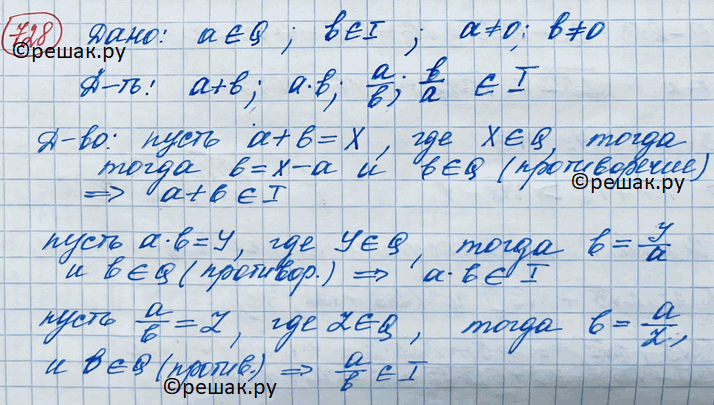 728 Дано: a∈Q ; b∈I ; a≠0; b≠0
©решак.ру
Д-ть: a+b; a·b; a/b; b/a ∈ I
Д-во: пусть a+b=X, где X∈Q, тогда
тогда b=X-a и b∈Q (противоречие)
⇒ a+b∈I
©решак.ру
пусть a·b=y, где y∈Q, тогда b=y/a
и b∈Q (противор.) ⇒ a·b∈I
пусть a/b=Z, где Z∈Q, тогда b=a/Z,
и b∈Q (против.) ⇒ a/b∈I
©решак.ру